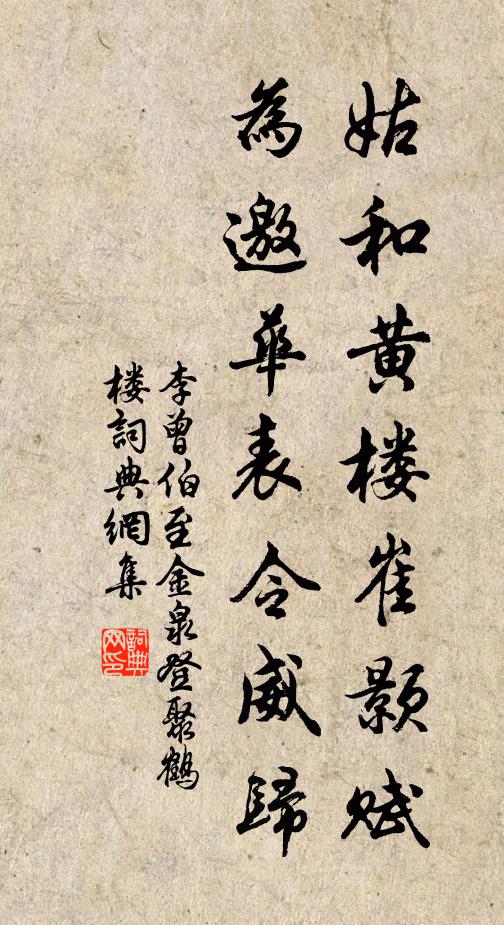 姑和黄楼崔颢赋
為邀華表令威歸
李曾伯至金泉登聚鶴
楼詞典網集
詞典网印